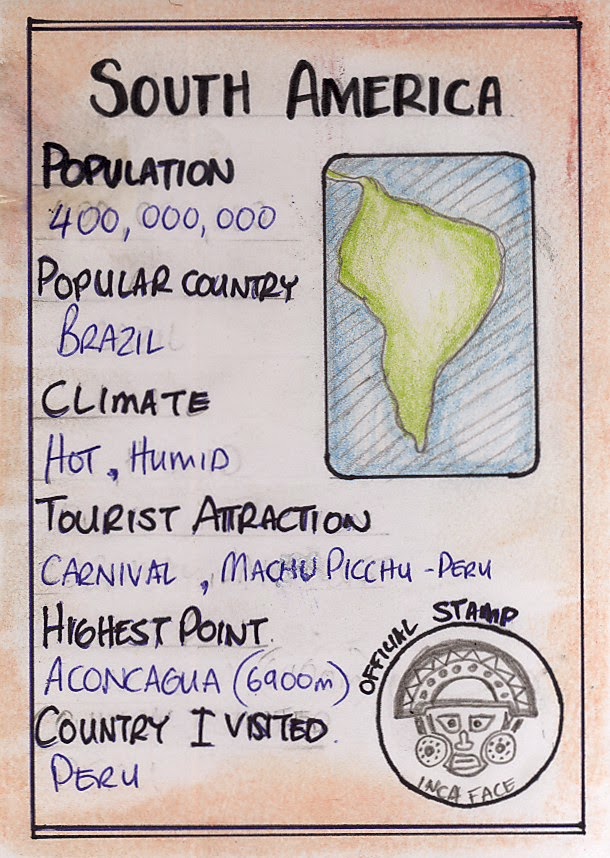 SOUTH AMERICA
POPULATION
400,000,000
POPULAR COUNTRY
BRAZIL
CLIMATE
HOT, HUMID
TOURIST ATTRACTION
CARNIVAL, MACHU PICCHU - PERU
HIGHEST POINT
ACONCAGUA (6900m)
COUNTRY I VISITED.
PERU
OFFICIAL STAMP
INCA FACE